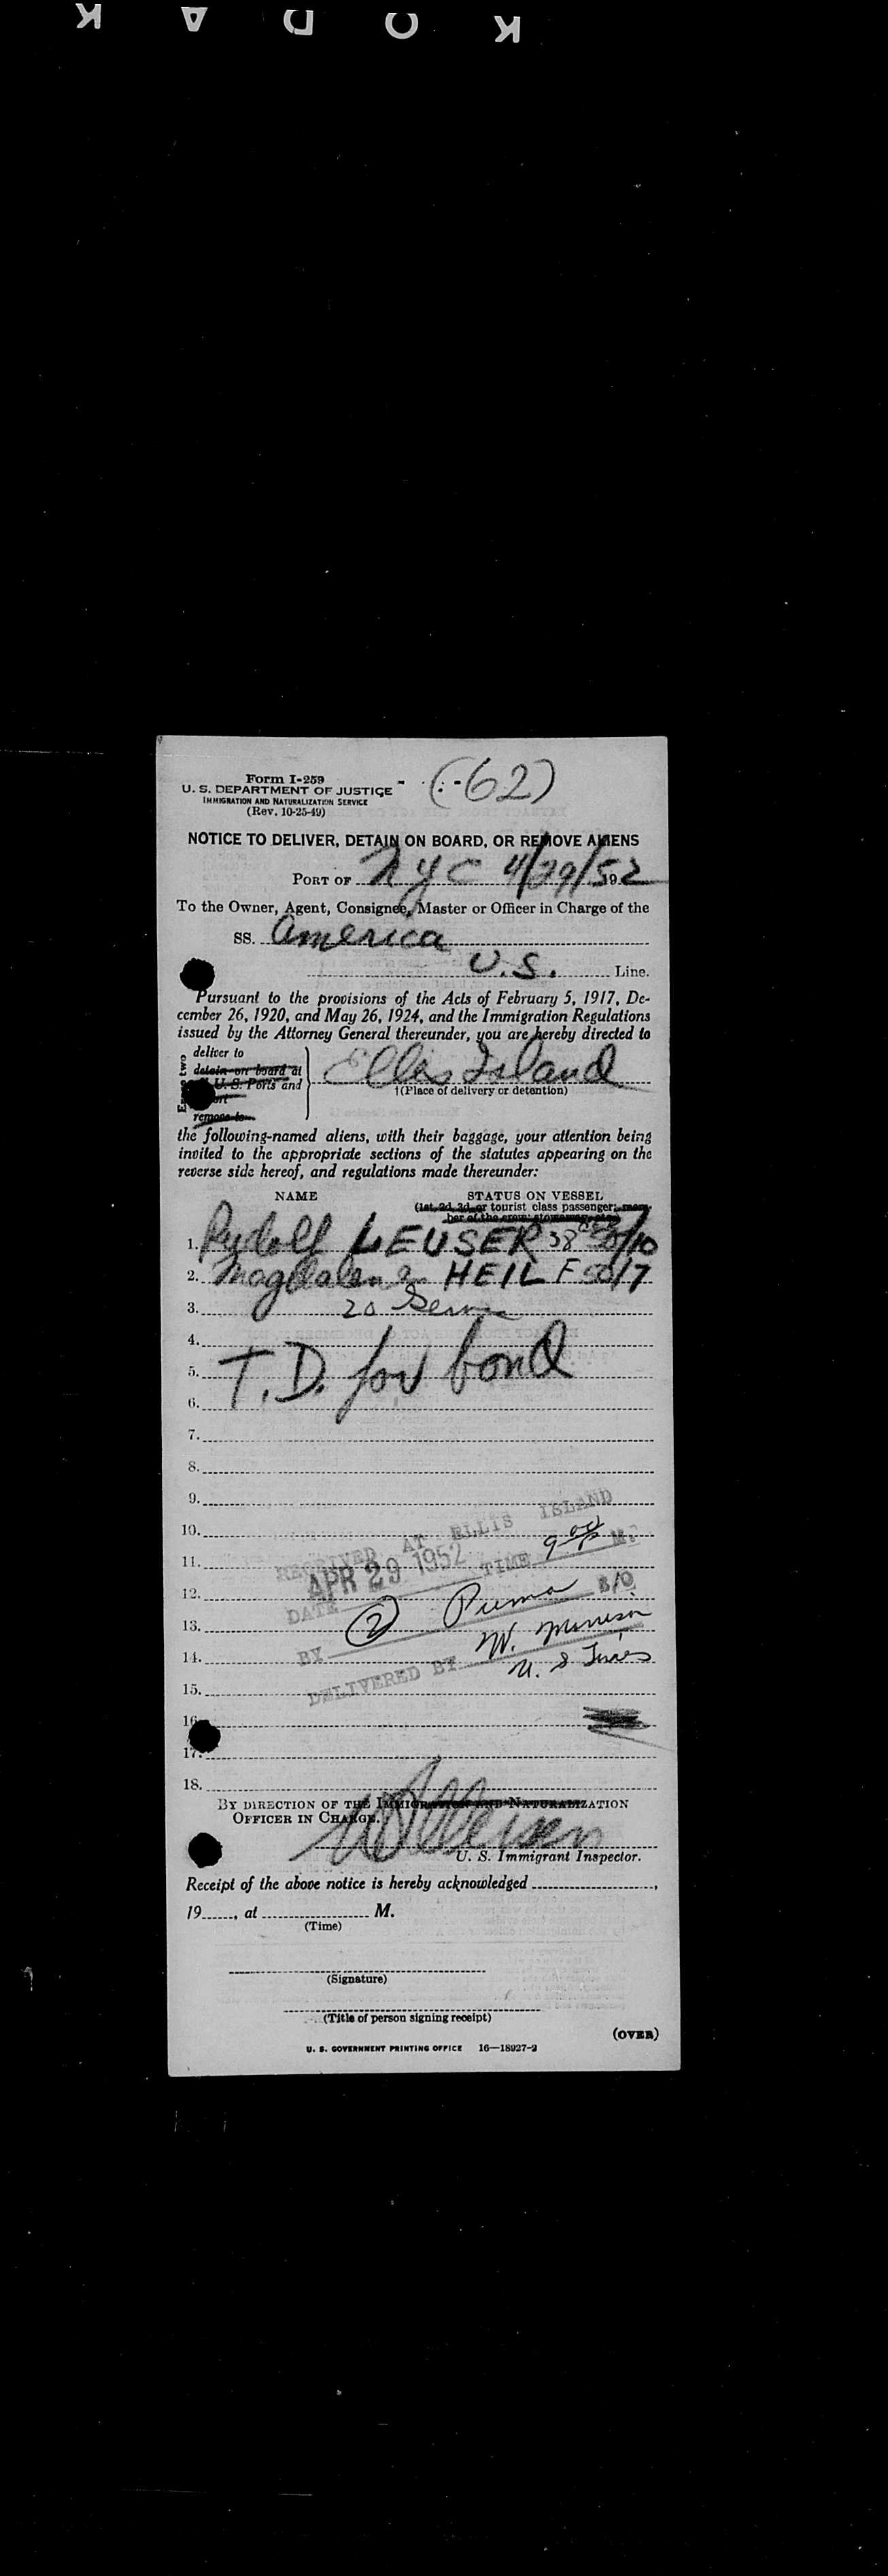 KODAK
Form I-259
U. S. DEPARTMENT OF JUSTICE
IMMIGRATION AND NATURALIZATION SERVICE
(Rev. 10-25-49)
(62)
NOTICE TO DELIVER, DETAIN ON BOARD, OR REMOVE ALIENS
PORT OF NYC 4/29/52 19
To the Owner, Agent, Consignee, Master or Officer in Charge of the
SS. America
U.S. Line.
Pursuant to the provisions of the Acts of February 5, 1917, De-
cember 26, 1920, and May 26, 1924, and the Immigration Regulations
issued by the Attorney General thereunder, you are hereby directed to
deliver to
detain on board at
U. S. Ports and
remove to
Ellis Island
(Place of delivery or detention)
the following-named aliens, with their baggage, your attention being
invited to the appropriate sections of the statutes appearing on the
reverse side hereof, and regulations made thereunder:
NAME STATUS ON VESSEL
(1st, 2d, 3d, or tourist class passenger; mem-
ber of the crew; stowaway, etc.)
1. Rudolf LEUSER 38 /10
2. Magdalena HEIL F /17
3. 20
4.
5. T.D. for bond
6.
7.
8.
9.
10. RECEIVED AT ELLIS ISLAND
11. APR 29 1952 TIME 9 00 M.
12. DATE
13. BY 2
14. DELIVERED BY W.
15. U. S. Lines
16.
17.
18.
BY DIRECTION OF THE IMMIGRATION AND NATURALIZATION
OFFICER IN CHARGE.
U. S. Immigrant Inspector.
Receipt of the above notice is hereby acknowledged
19, at M.
(Time)
(Signature)
(Title of person signing receipt)
(OVER)
U. S. GOVERNMENT PRINTING OFFICE 16—18927-2